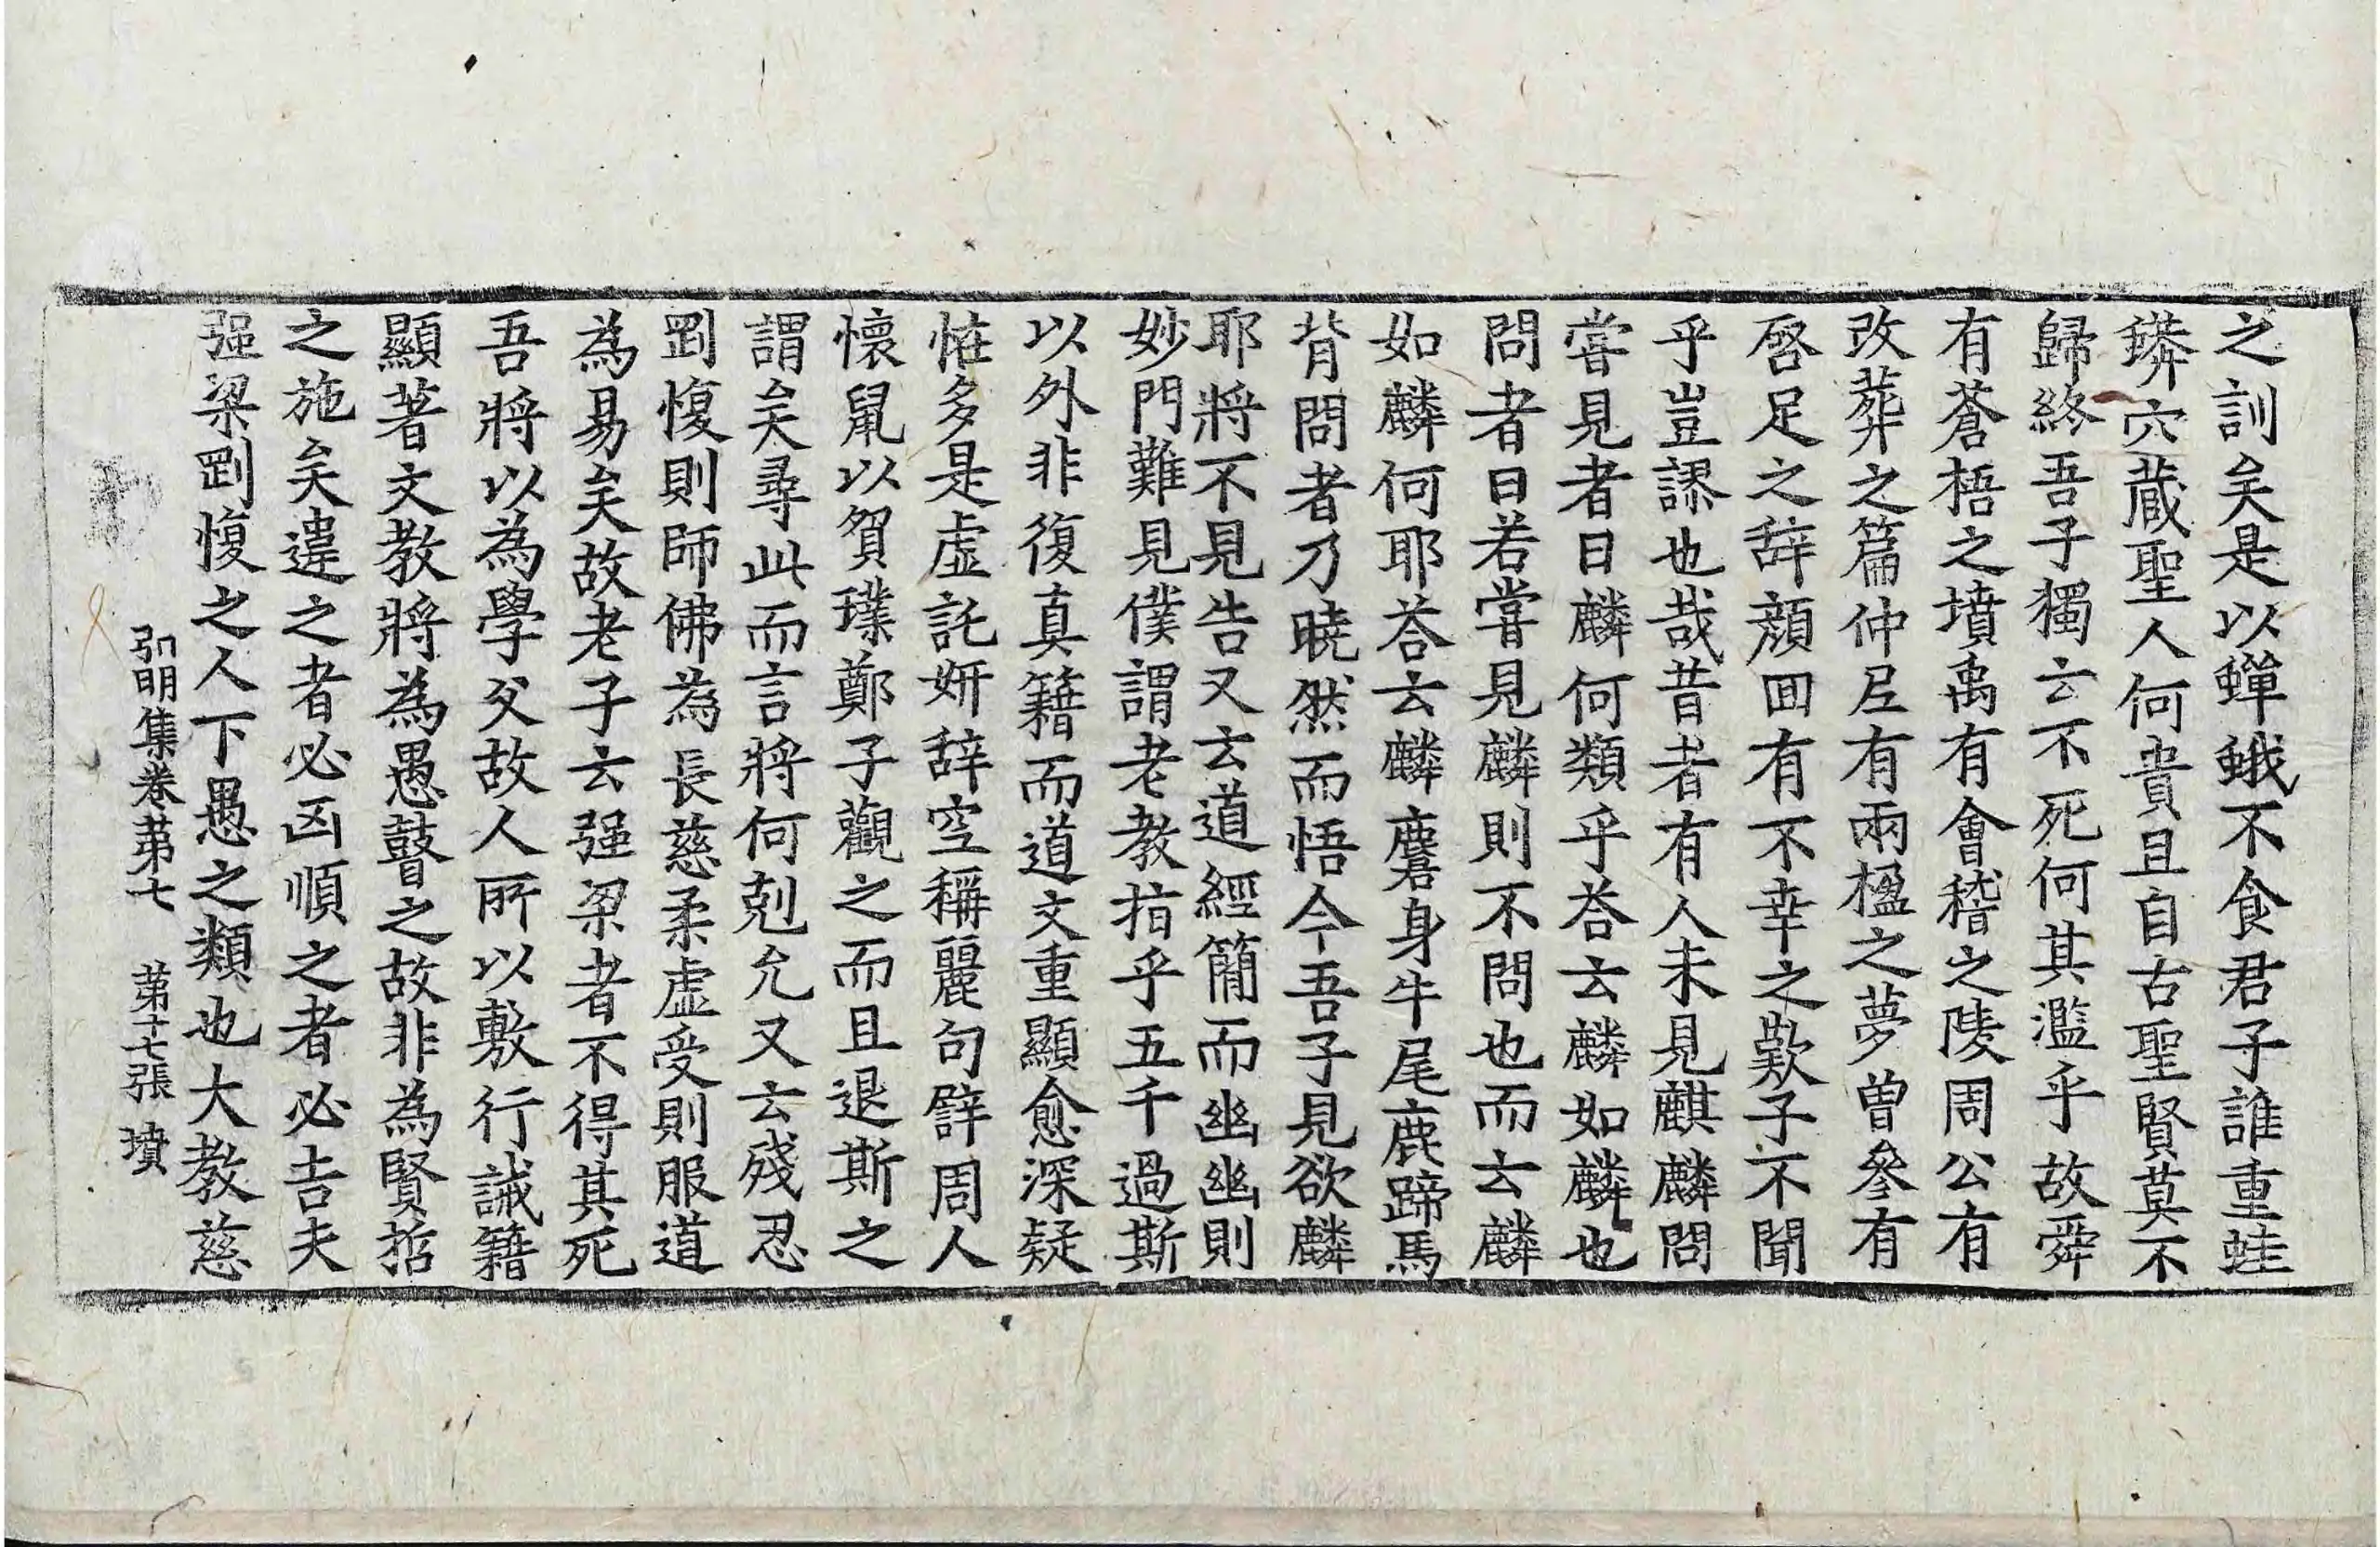 之訓矣是以蟬蛾不食君子誰重蛙
蠎穴蔵聖人何貴且自古聖賢莫不
歸終吾子獨云不死何其濫乎故舜
有蒼梧之墳禹有會稽之陵周公有
改葬之篇仲尼有兩楹之夢曾參有
啓足之辞顔回有不幸之歎子不聞
乎豈謬也哉昔者有人未見麒麟問
嘗見者曰麟何類乎荅云麟如麟也
問者曰若嘗見麟則不問也而云麟
如麟何耶荅云麟麏身牛尾鹿蹄馬
背問者乃曉然而悟今吾子見欲麟
耶將不見告又云道經簡而幽幽則
妙門難見僕謂老教指乎五千過斯
以外非復真籍而道文重顯愈深疑
恠多是虛託妍辞空稱麗句譬周人
懷鼠以賀璞鄭子觀之而且退斯之
謂矣尋此而言將何剋允又云殘忍
剛愎則師佛為長慈柔虛受則服道
為易矣故老子云强梁者不得其死
吾將以為學父故人所以敷行誡籍
顯著文教將為愚瞽之故非為賢哲
之施矣違之者必凶順之者必吉夫
强梁剛愎之人下愚之類也大教慈
弘明集卷第七 第十七張 墳